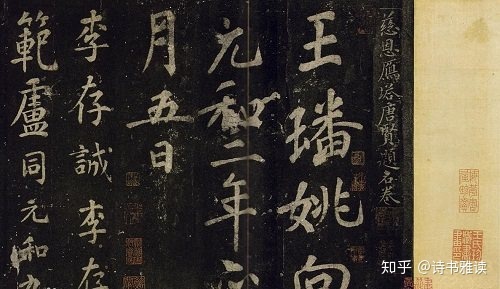 慈恩鴈塔唐賢題名卷
王璠姚向
元和二年正
月五日
李存誠李存
範盧同元和
知乎 @诗书雅读